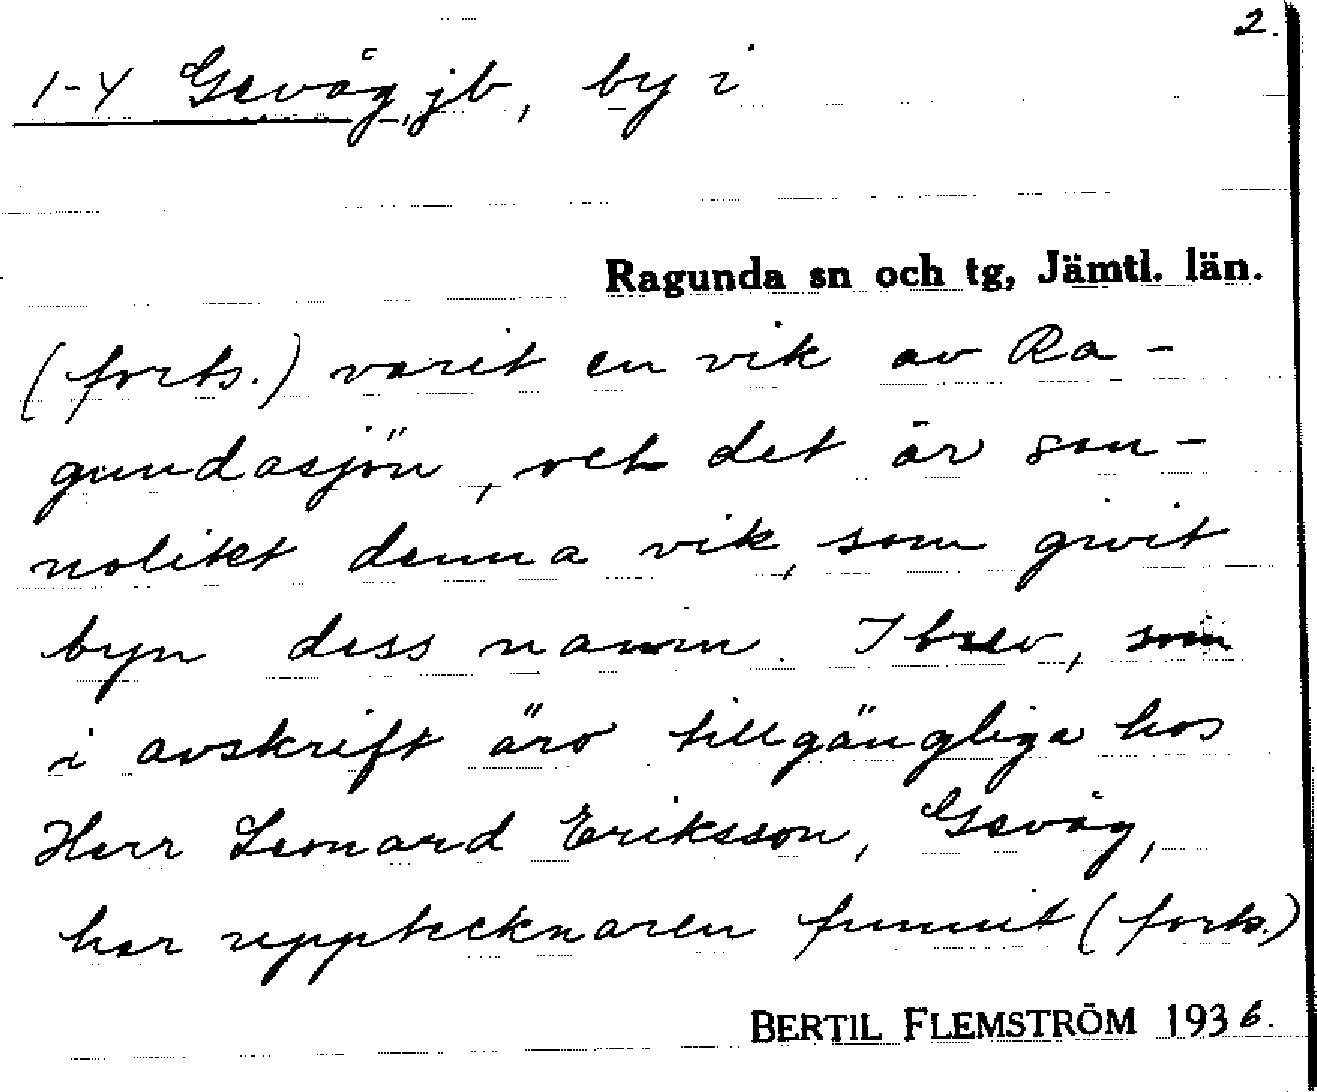 2.
1-4 Gevåg, jb, by i
Ragunda sn och tg, Jämtl. län.
(forts.) varit en vik av Ra-
gundasjön, och det är san-
nolikt denna vik, som givit
byn dess namn. I brev, som
i avskrift äro tillgängliga hos
Herr Leonard Eriksson, Gevåg,
har upptecknaren funnit (forts.)
BERTIL FLEMSTRÖM 1936.